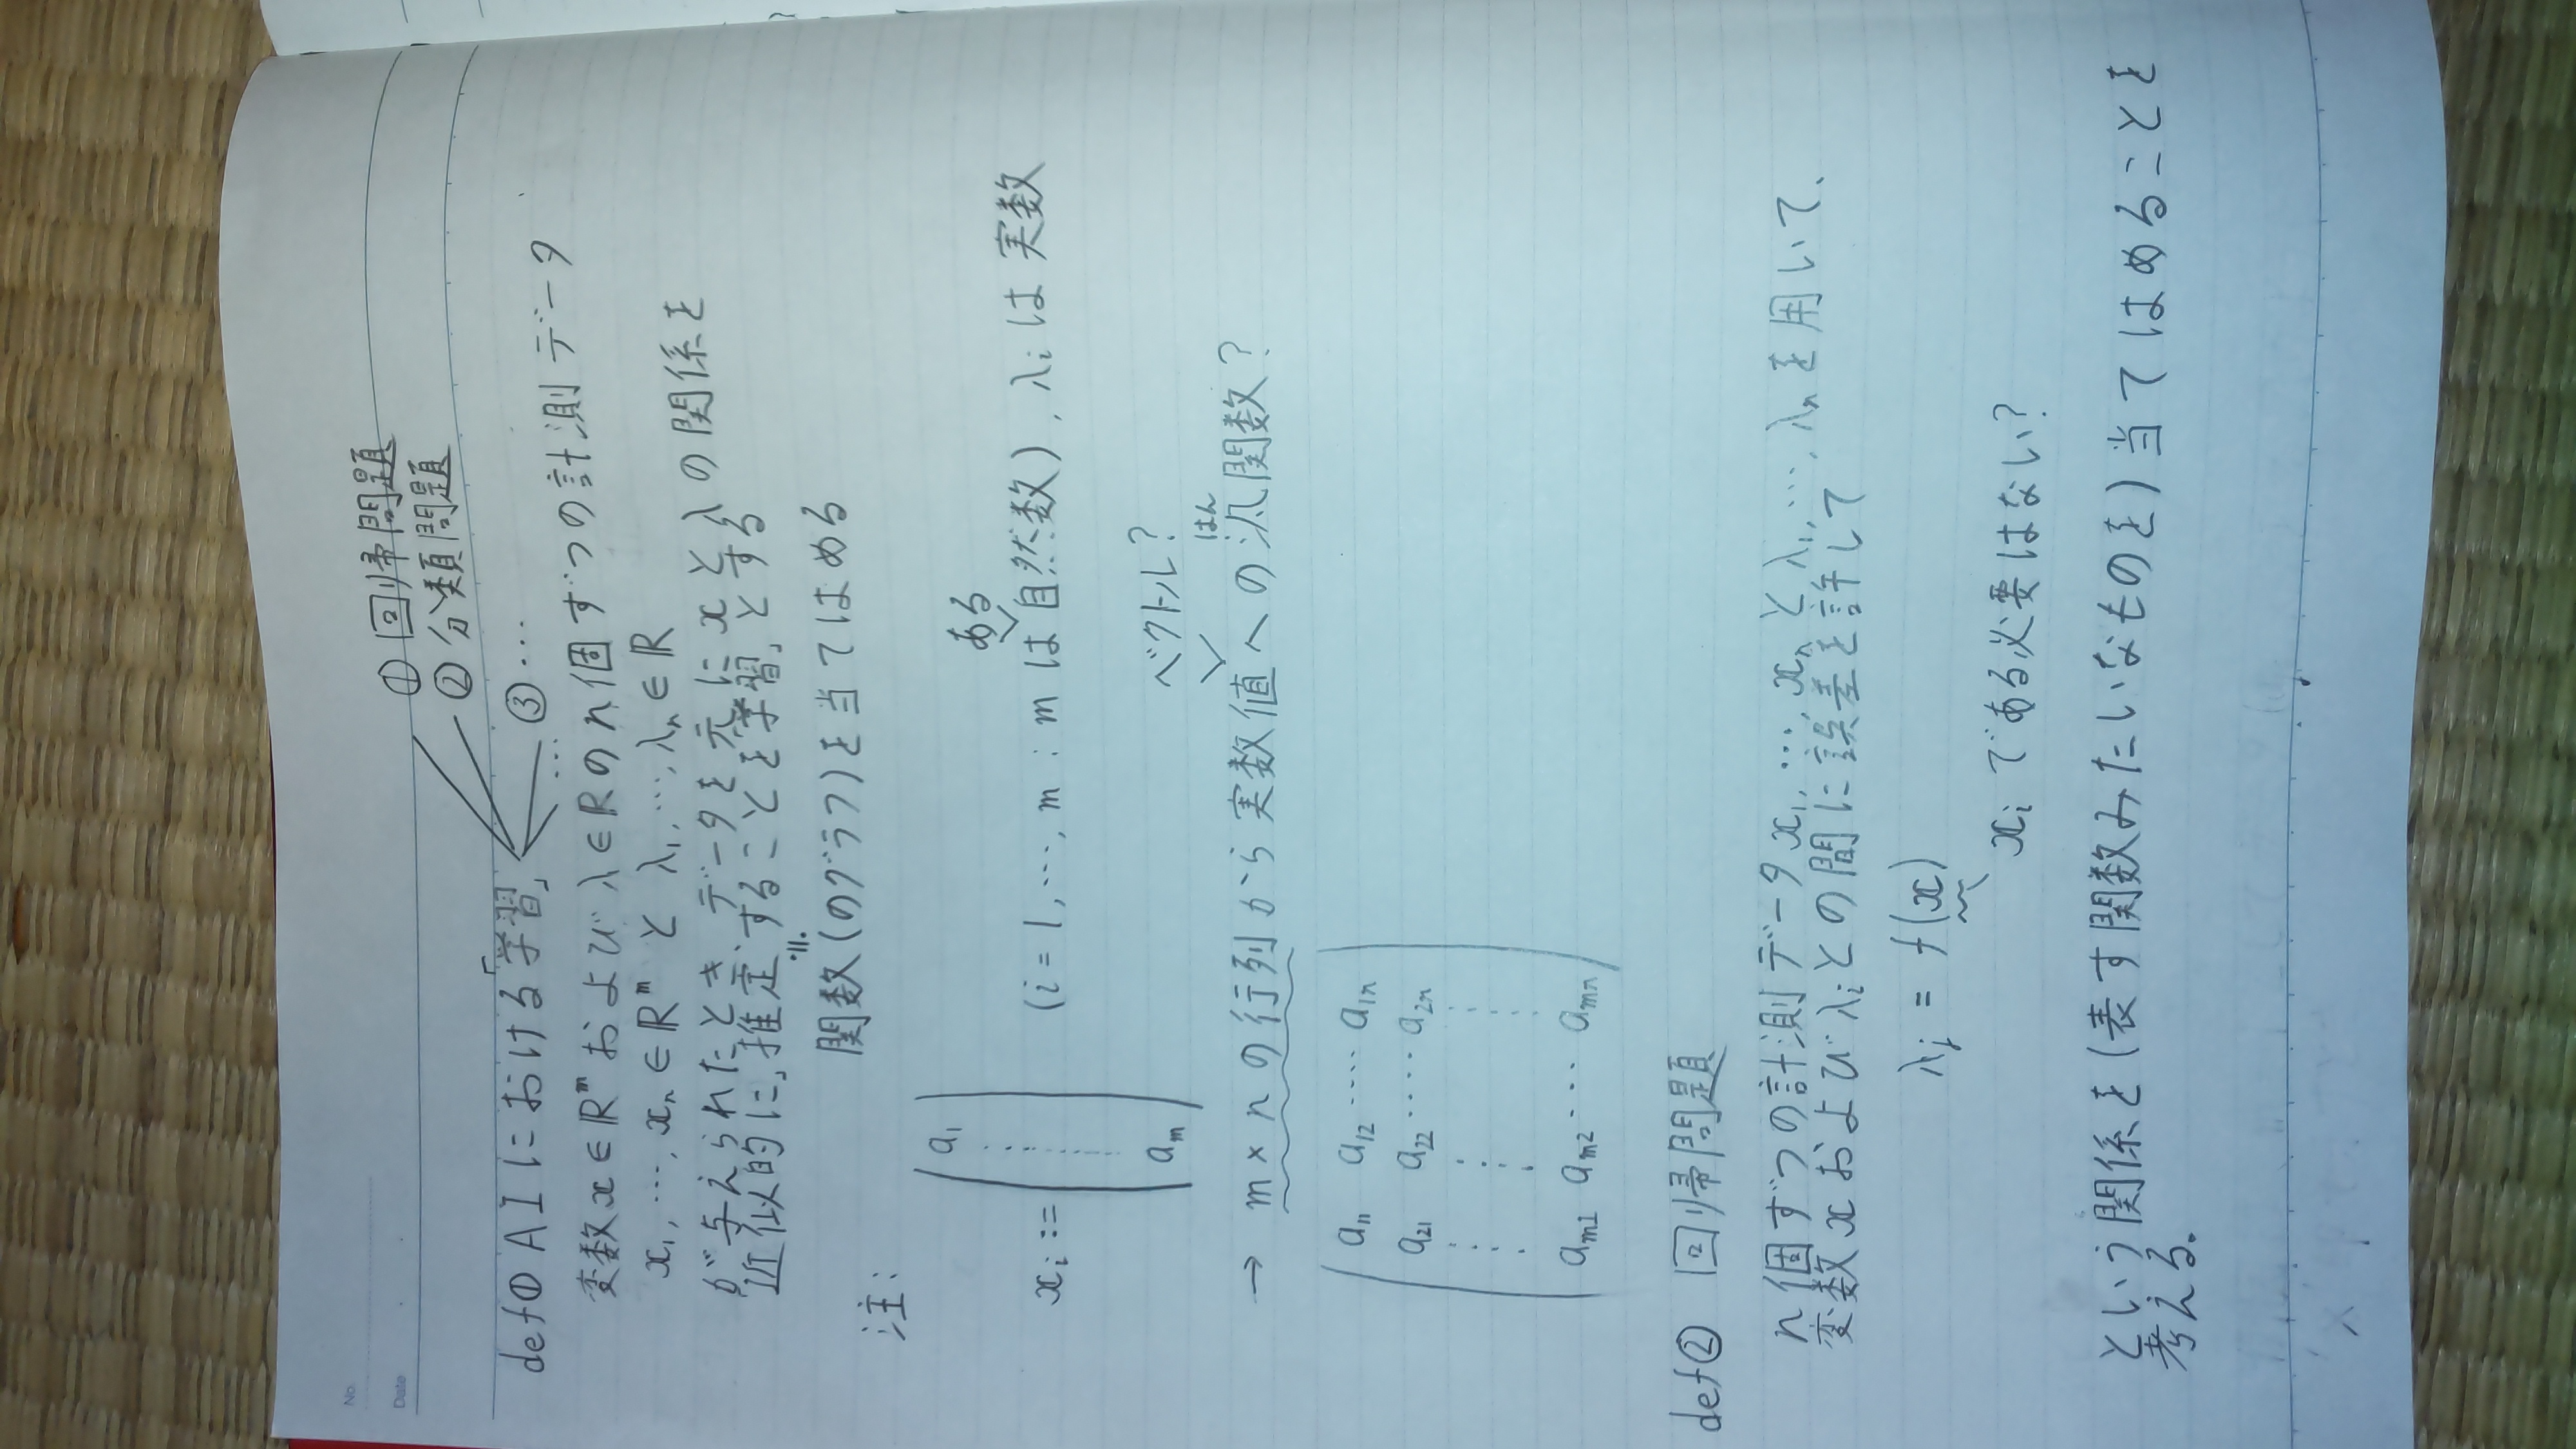 No.
Date
① 回帰問題
② 分類問題
③ ···
...
def① AIにおける「学習」
変数 x∈ℝᵐ および λ∈ℝ の n個ずつの計測データ
x₁, …, xₙ ∈ ℝᵐ と λ₁, …, λₙ ∈ ℝ
が与えられたとき、データを元に x と λ の関係を
近似的に「推定」することを「学習」とする
関数(のグラフ)を当てはめる
注:
ある
xᵢ := (a₁ ⋮ aₘ) (i = 1, …, m : m は自然数), λᵢ は 実数
ベクトル?
はん
→ m×n の行列から実数値への汎関数?
a₁₁ a₁₂ ···· a₁ₙ
a₂₁ a₂₂ ···· a₂ₙ
⋮ ⋮ ⋮
aₘ₁ aₘ₂ ··· aₘₙ
def② 回帰問題
n個ずつの計測データ x₁, …, xₙ と λ₁, …, λₙ を用いて、
変数 x および λᵢ との間に誤差を許して
λⱼ = f(x)
xᵢ である必要はない?
という関係を(表す関数みたいなものを)当てはめることを
考える。